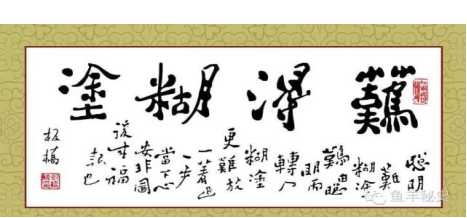 難得糊塗
聰明
難糊塗
難由聰
明而
轉入
糊塗
更難放
一著退
一步
當下心
安非圖
後來福
報也
板橋